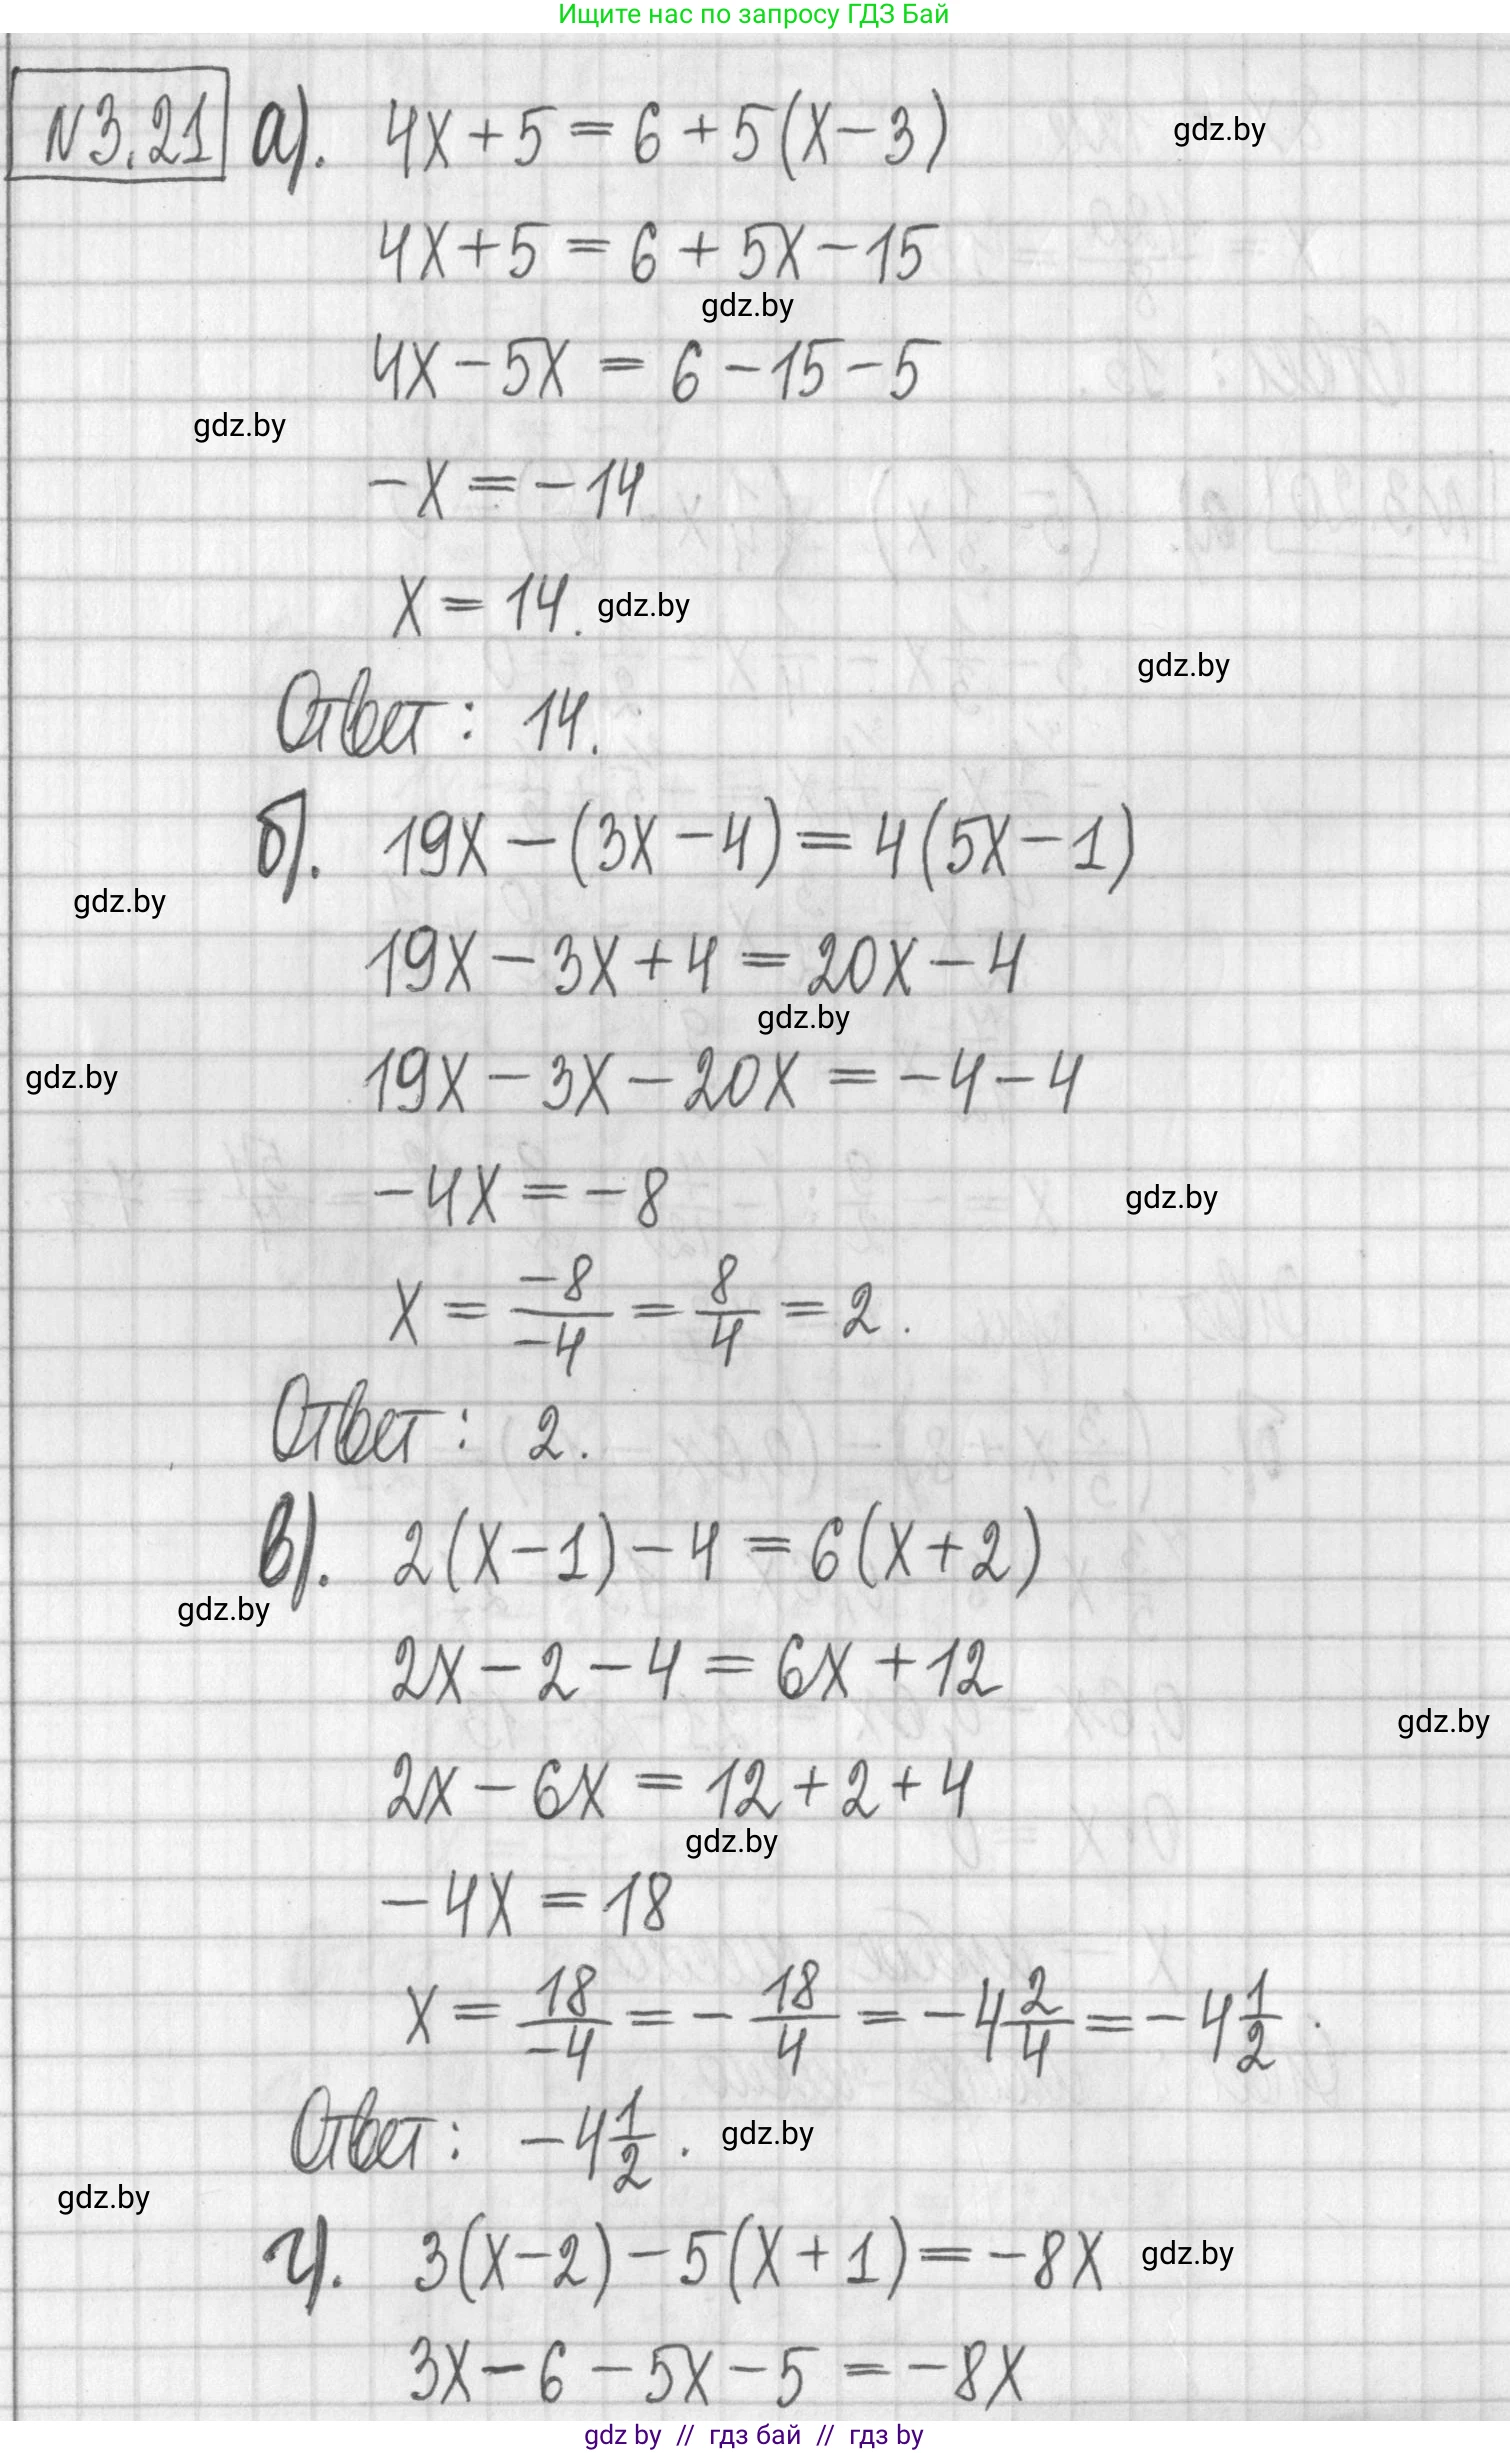 Ищите нас по запросу ГДЗ Бай
N3.21 а). 4x+5=6+5(x-3)
gdz.by
4x+5=6+5x-15
gdz.by
4x-5x=6-15-5
gdz.by
-x=-14
x=14. gdz.by
gdz.by
Ответ: 14.
б). 19x-(3x-4)=4(5x-1)
gdz.by
19x-3x+4=20x-4
gdz.by
19x-3x-20x=-4-4
gdz.by
-4x=-8
gdz.by
x=\frac{-8}{-4}=\frac{8}{4}=2.
Ответ: 2.
в). 2(x-1)-4=6(x+2)
gdz.by
2x-2-4=6x+12
gdz.by
2x-6x=12+2+4
gdz.by
-4x=18
x=\frac{18}{-4}=-\frac{18}{4}=-4\frac{2}{4}=-4\frac{1}{2}.
Ответ: -4\frac{1}{2}. gdz.by
gdz.by
г). 3(x-2)-5(x+1)=-8x gdz.by
3x-6-5x-5=-8x
gdz by // гдз бай // гдз by